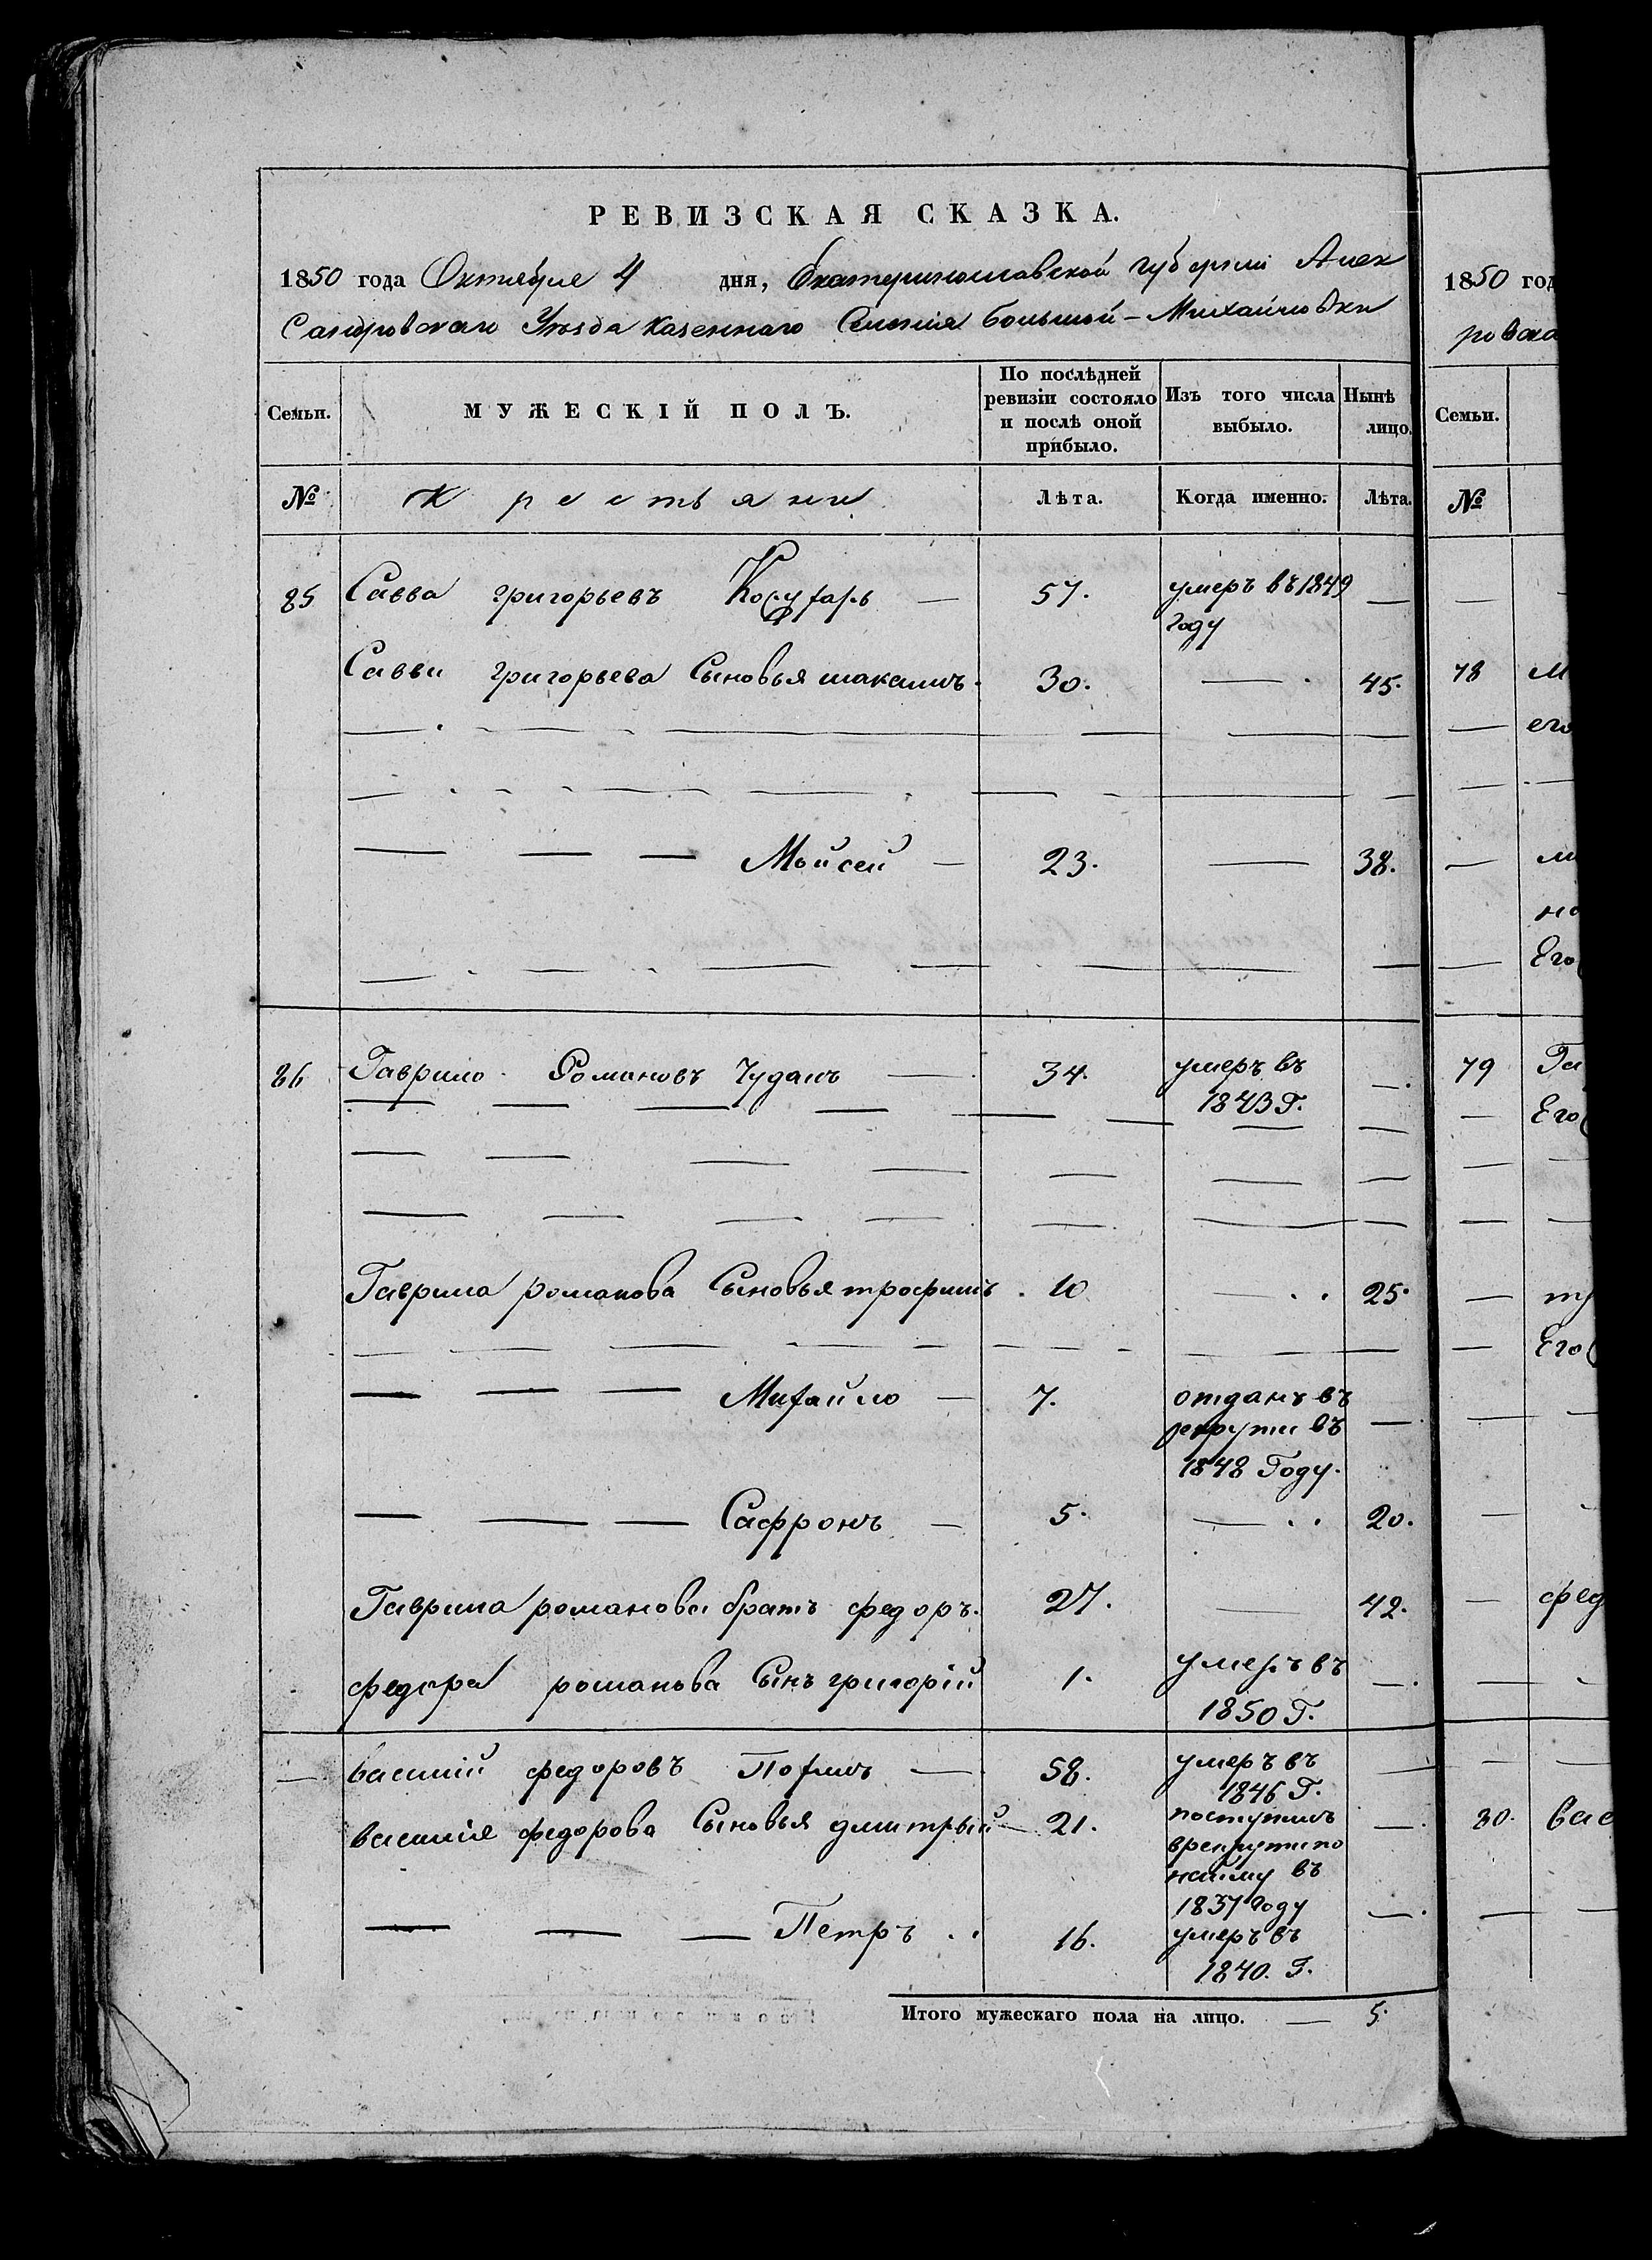 РЕВИЗСКАЯ СКАЗКА.
1850 года Октября 4 дня, Екатеринославской губернiи Алек
Сандровскаго Уѣзда казеннаго Селенiя большой-Михайловки
Семьи. МУЖЕСКIЙ ПОЛЪ. По послѣдней ревизiи состояло и послѣ оной прибыло. Изъ того числа выбыло. Нынѣ лицо.
№ Крестьяни Лѣта. Когда именно. Лѣта.
85 Савва григорьевъ — 57. умеръ въ 1849 —
году
Савви григорьева Сыновья макъсимъ. 30. — 45.
— — — Мойсей — 23. — 38.
86 Гаврило Романовъ Чуданъ — 34. умеръ въ —
1843 Г.
Гаврила романова Сыновья трофимъ. 10 — 25.
— — — Михайло — 7. отданъ въ —
рекрути въ
1848 Году.
— — — Сафронъ — 5. — 20.
Гаврила романова братъ федоръ. 27. — 42.
федора романова Сынъ григорiй 1. умеръ въ —
1850 Г.
— василiй федоровъ — 58. умеръ въ —
1846 Г.
василiя федорова Сыновья дмитрый — 21. поступилъ —
врекрути по
найму въ
1837 году
— — — Петръ 16. умеръ въ —
1840. Г.
Итого мужескаго пола на лицо. — 5.
1850 год
ровска
Семьи.
№
78 м
его
—
— м
но
— Его
79 Га
— Его
— т
— Его
— фед
80. вас